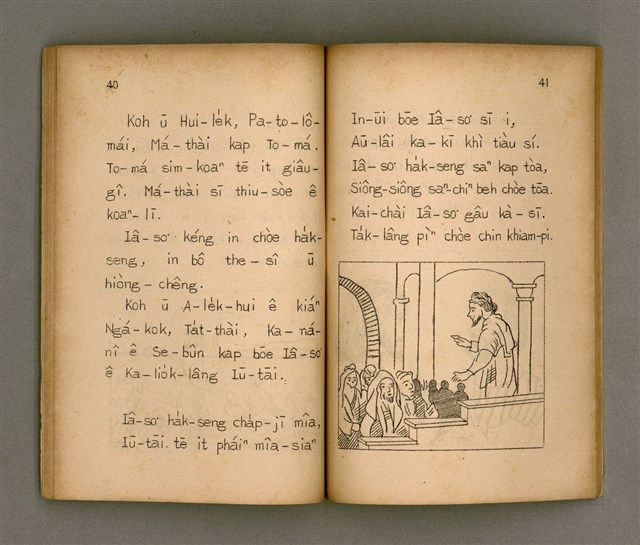 40
Koh ū Hui-le̍k, Pa-to-lô-
mái, Má-thài kap To-má.
To-má sim-koaⁿ tē it giâu-
gî. Má-thài sī thiu-sòe ê
koaⁿ-lī.
Iâ-so͘ kéng in chòe ha̍k-
seng, in bô the-sî ū
hiòng-chêng.
Koh ū A-le̍k-hui ê kiáⁿ
Ngá-kok, Ta̍t-thài, Ka-ná-
nî ê Se-bûn kap bōe Iâ-so͘
ê Ka-lio̍k-lâng Iū-tāi.
Iâ-so͘ ha̍k-seng cha̍p-jī mîa,
Iū-tāi tē it pháiⁿ mîa-siaⁿ
41
In-ūi bōe Iâ-so͘ sī i,
Aū-lâi ka-kī khì tiàu sí.
Iâ-so͘ ha̍k-seng saⁿ kap tòa,
Siông-siông saⁿ-chiⁿ beh chòe tōa.
Kai-chài Iâ-so͘ gâu kà-sī.
Ta̍k-lâng pìⁿ chòe chin khiam-pi.